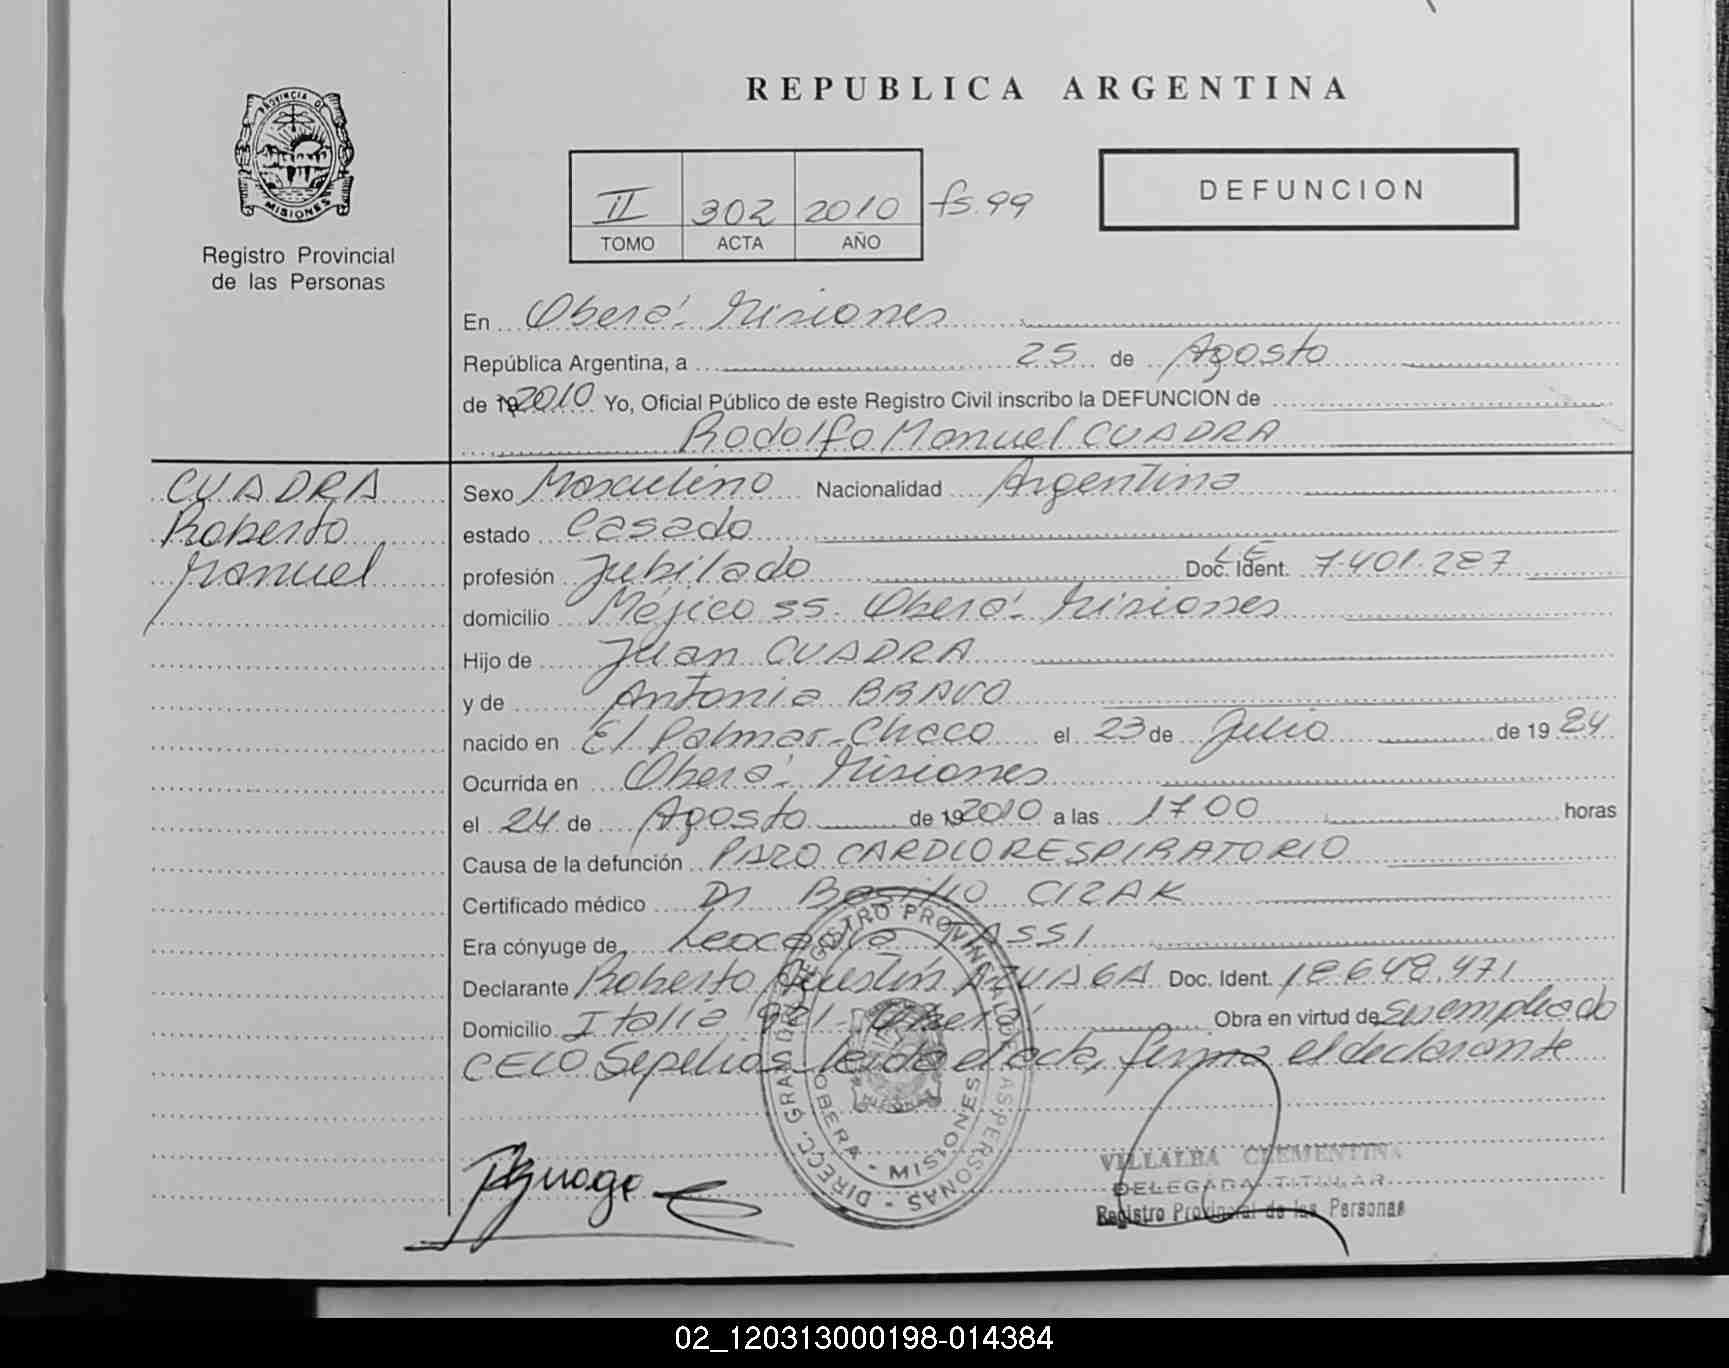 REPUBLICA ARGENTINA
PROVINCIA DE
MISIONES
Registro Provincial
de las Personas
II 302 2010 fs. 99
TOMO ACTA AÑO
DEFUNCION
En Oberá. Misiones
República Argentina, a 25 de Agosto
de 192010 Yo, Oficial Público de este Registro Civil inscribo la DEFUNCION de
Rodolfo Manuel CUADRA
CUADRA
Roberto
Manuel
Sexo Masculino Nacionalidad Argentina
estado Casado
profesión Jubilado Doc. Ident. LE 7.401.287
domicilio Méjico 55. Oberá. Misiones
Hijo de Juan CUADRA
y de Antonia BRAVO
nacido en El Palmar-Chaco el 23 de Julio de 19 24
Ocurrida en Oberá. Misiones
el 24 de Agosto de 192010 a las 17 00 horas
Causa de la defunción PARO CARDIORESPIRATORIO
Certificado médico Dr Basilio CIZAK
Era cónyuge de Leocadia TASSI
Declarante Roberto Agustín AZUAGA Doc. Ident. 18.648.471
Domicilio Italia 921- Oberá Obra en virtud de ser empleado
CELO Sepelios leída el acta, firma el declarante
DIRECC. GRAL. DEL REGISTRO PROVINCIAL DE LAS PERSONAS
OBERA - MISIONES
Azuaga
VILLALBA CLEMENTINA
DELEGADA TITULAR
Registro Provincial de las Personas
02_120313000198-014384